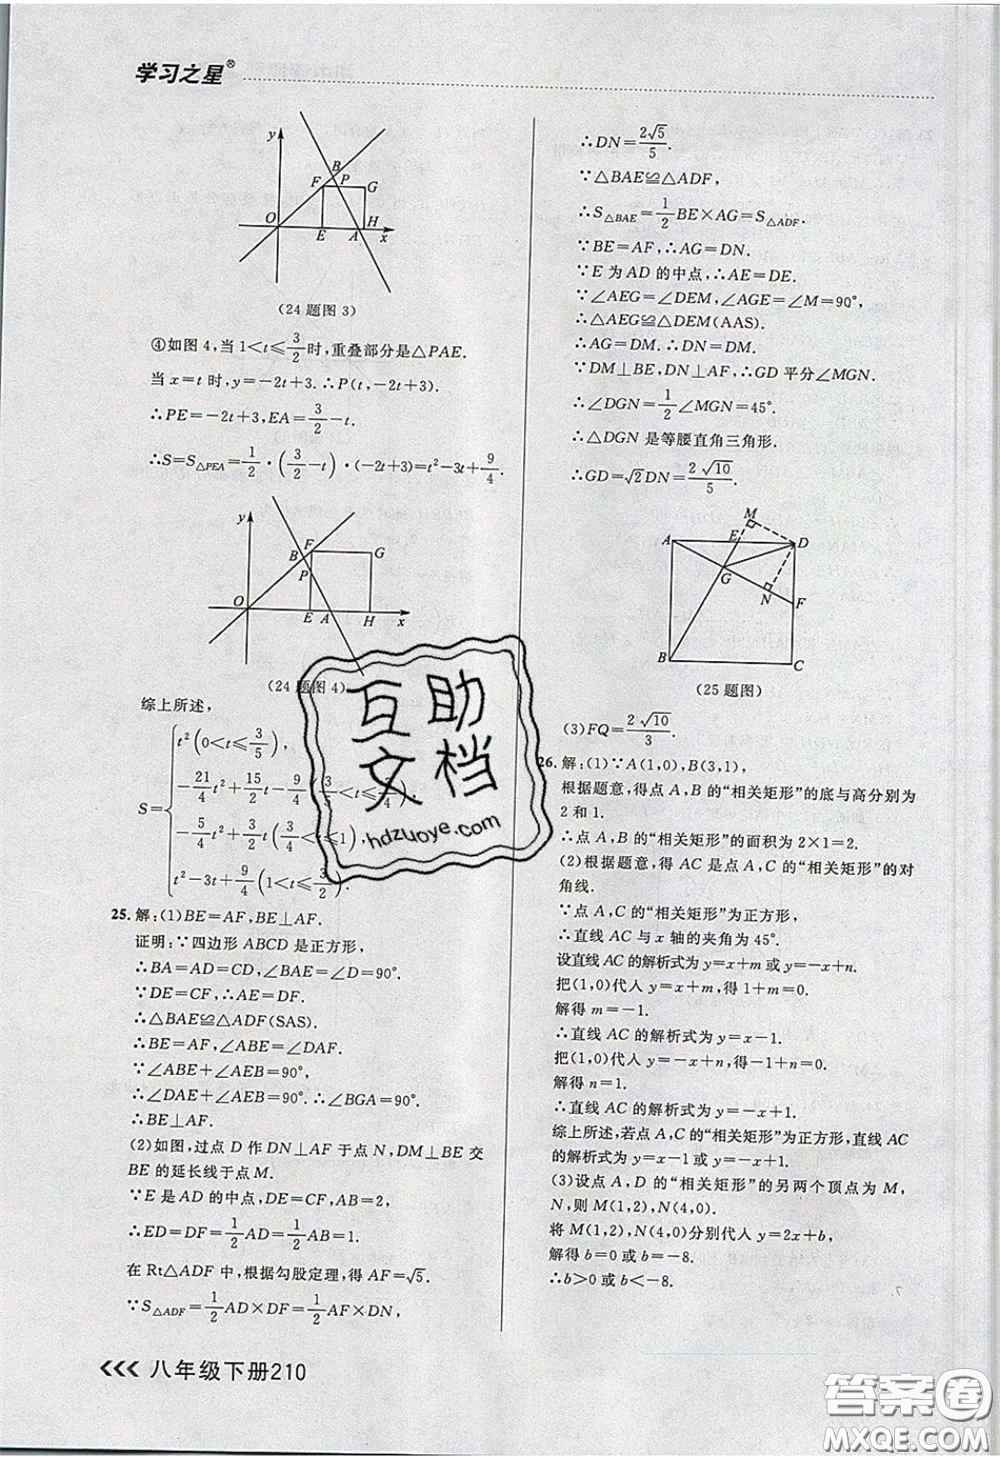 学习之星®
y
B
F P G
O E A H x
(24题图3)
④如图4,当1<t≤3/2时,重叠部分是△PAE.
当x=t时,y=-2t+3.∴P(t,-2t+3).
∴PE=-2t+3,EA=3/2-t.
∴S=S△PEA=1/2·(3/2-t)·(-2t+3)=t²-3t+9/4.
y
B F G
P
O E A H x
(24题图4)
综上所述,
t²(0<t≤3/5),
-21/4t²+15/2t-9/4(3/5<t≤3/4),
S=
-5/4t²+3/2t(3/4<t≤1),
t²-3t+9/4(1<t≤3/2).
25.解:(1)BE=AF,BE⊥AF.
证明:∵四边形ABCD是正方形,
∴BA=AD=CD,∠BAE=∠D=90°.
∵DE=CF,∴AE=DF.
∴△BAE≌△ADF(SAS).
∴BE=AF,∠ABE=∠DAF.
∵∠ABE+∠AEB=90°,
∴∠DAE+∠AEB=90°.∴∠BGA=90°.
∴BE⊥AF.
(2)如图,过点D作DN⊥AF于点N,DM⊥BE交
BE的延长线于点M.
∵E是AD的中点,DE=CF,AB=2,
∴ED=DF=1/2AD=1/2AB=1.
在Rt△ADF中,根据勾股定理,得AF=√5.
∵S△ADF=1/2AD×DF=1/2AF×DN,
∴DN=2√5/5.
∵△BAE≌△ADF,
∴S△BAE=1/2BE×AG=S△ADF.
∵BE=AF,∴AG=DN.
∵E为AD的中点,∴AE=DE.
∵∠AEG=∠DEM,∠AGE=∠M=90°,
∴△AEG≌△DEM(AAS).
∴AG=DM.∴DN=DM.
∵DM⊥BE,DN⊥AF,∴GD平分∠MGN.
∴∠DGN=1/2∠MGN=45°.
∴△DGN是等腰直角三角形.
∴GD=√2DN=2√10/5.
M
A E D
G
N F
B C
(25题图)
(3)FQ=2√10/3.
26.解:(1)∵A(1,0),B(3,1),
根据题意,得点A,B的“相关矩形”的底与高分别为
2和1.
∴点A,B的“相关矩形”的面积为2×1=2.
(2)根据题意,得AC是点A,C的“相关矩形”的对
角线.
∵点A,C的“相关矩形”为正方形,
∴直线AC与x轴的夹角为45°.
设直线AC的解析式为y=x+m或y=-x+n.
把(1,0)代入y=x+m,得1+m=0.
解得m=-1.
∴直线AC的解析式为y=x-1.
把(1,0)代入y=-x+n,得-1+n=0.
解得n=1.
∴直线AC的解析式为y=-x+1.
综上所述,若点A,C的“相关矩形”为正方形,直线AC
的解析式为y=x-1或y=-x+1.
(3)设点A,D的“相关矩形”的另两个顶点为M,
N,则M(1,2),N(4,0).
将M(1,2),N(4,0)分别代入y=2x+b,
解得b=0或b=-8.
∴b>0或b<-8.
互助
文档
hdzuoye.com
八年级下册210
答案圈
MXQE.COM